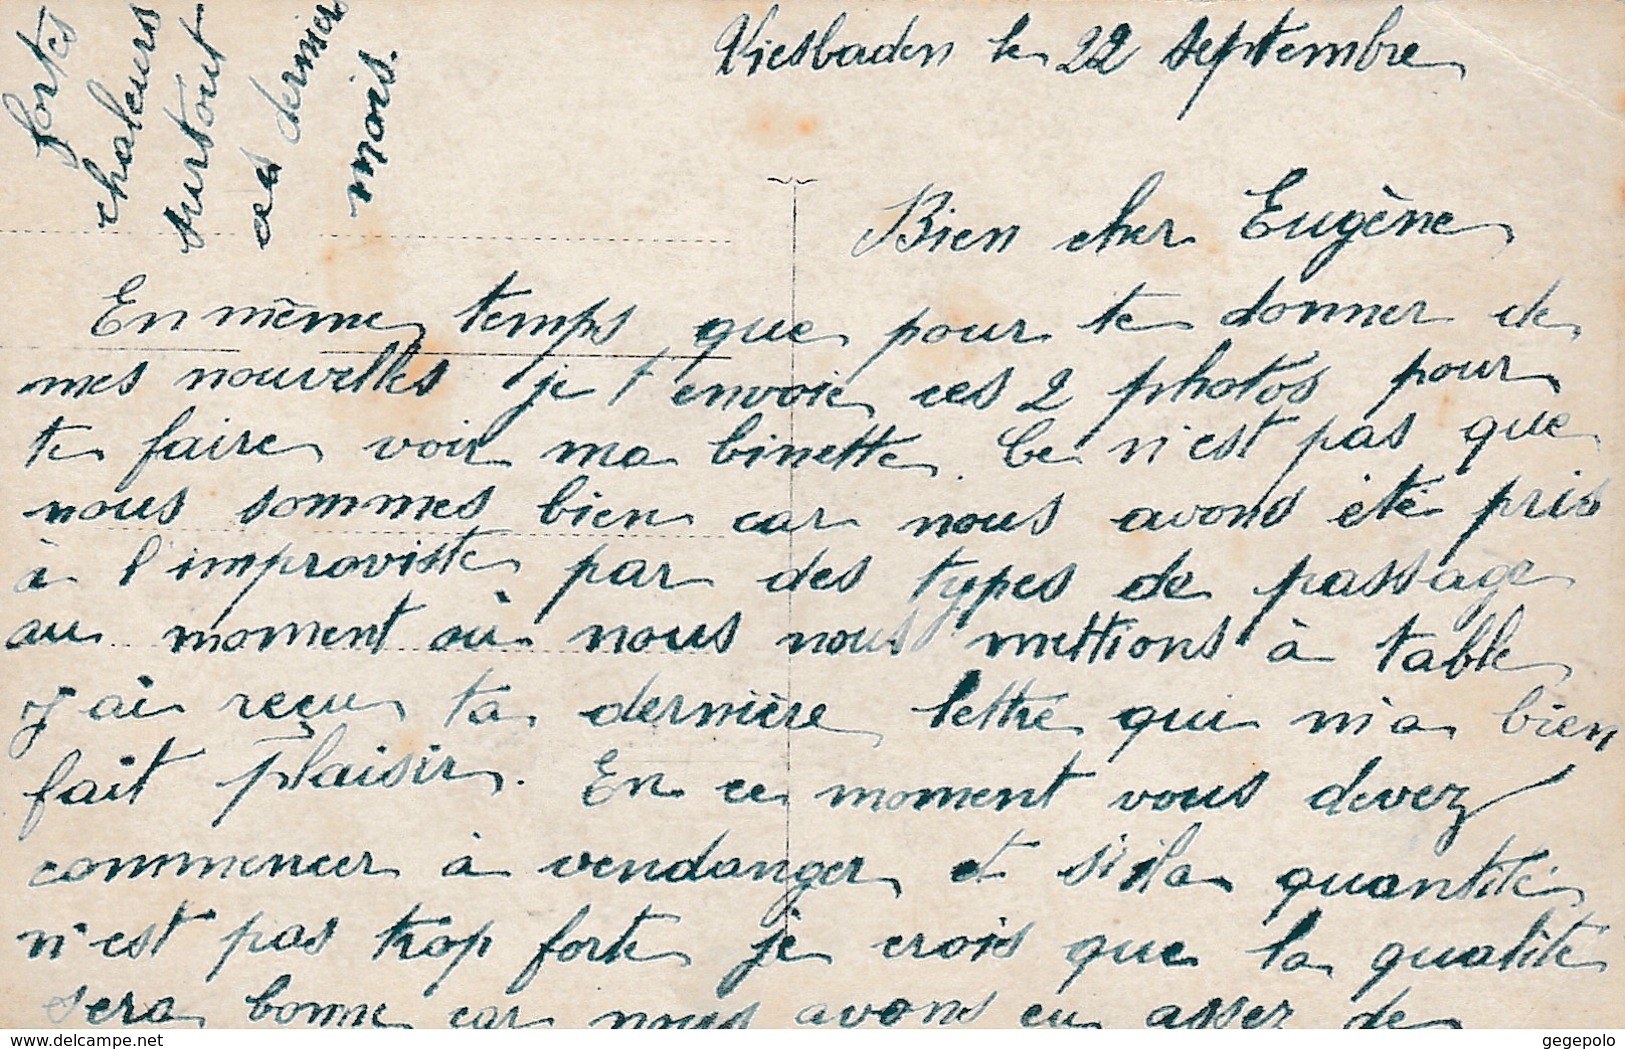 Wiesbaden le 22 septembre
Bien cher Eugène
En même temps que pour te donner de
mes nouvelles je t'envoie ces 2 photos pour
te faire voir ma binette. Ce n'est pas que
nous sommes bien car nous avons été pris
à l'improviste par des types de passage
au moment où nous nous mettions à table
j'ai reçu ta dernière lettre qui m'a bien
fait plaisir. En ce moment vous devez
commencer à vendanger et si la quantité
n'est pas trop forte je crois que la qualité
sera bonne car nous avons eu assez de
fortes
chaleurs
surtout
ces derniers
mois.
www.delcampe.net
gegepolo